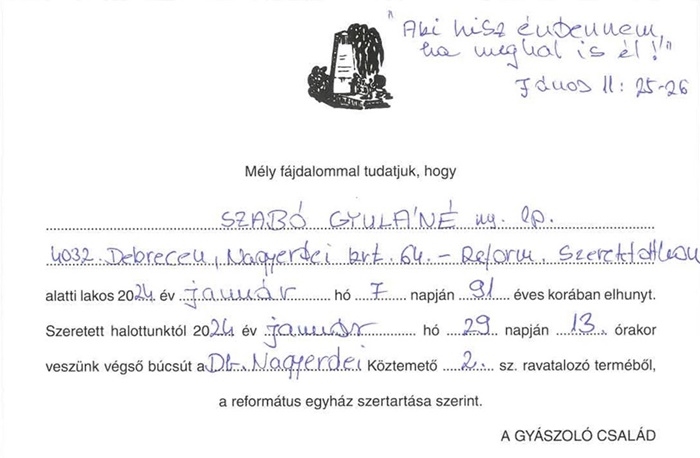 "Aki hisz énbennem,
ha meghal is él!"
János 11: 25-26
Mély fájdalommal tudatjuk, hogy
SZABÓ GYULÁNÉ ny. lp.
4032. Debrecen, Nagyerdei krt. 64. – Reform. Szeretetotthon
alatti lakos 2024 év január hó 7 napján 91 éves korában elhunyt.
Szeretett halottunktól 2024 év január hó 29 napján 13. órakor
veszünk végső búcsút a Db. Nagyerdei Köztemető 2. sz. ravatalozó terméből,
a református egyház szertartása szerint.
A GYÁSZOLÓ CSALÁD